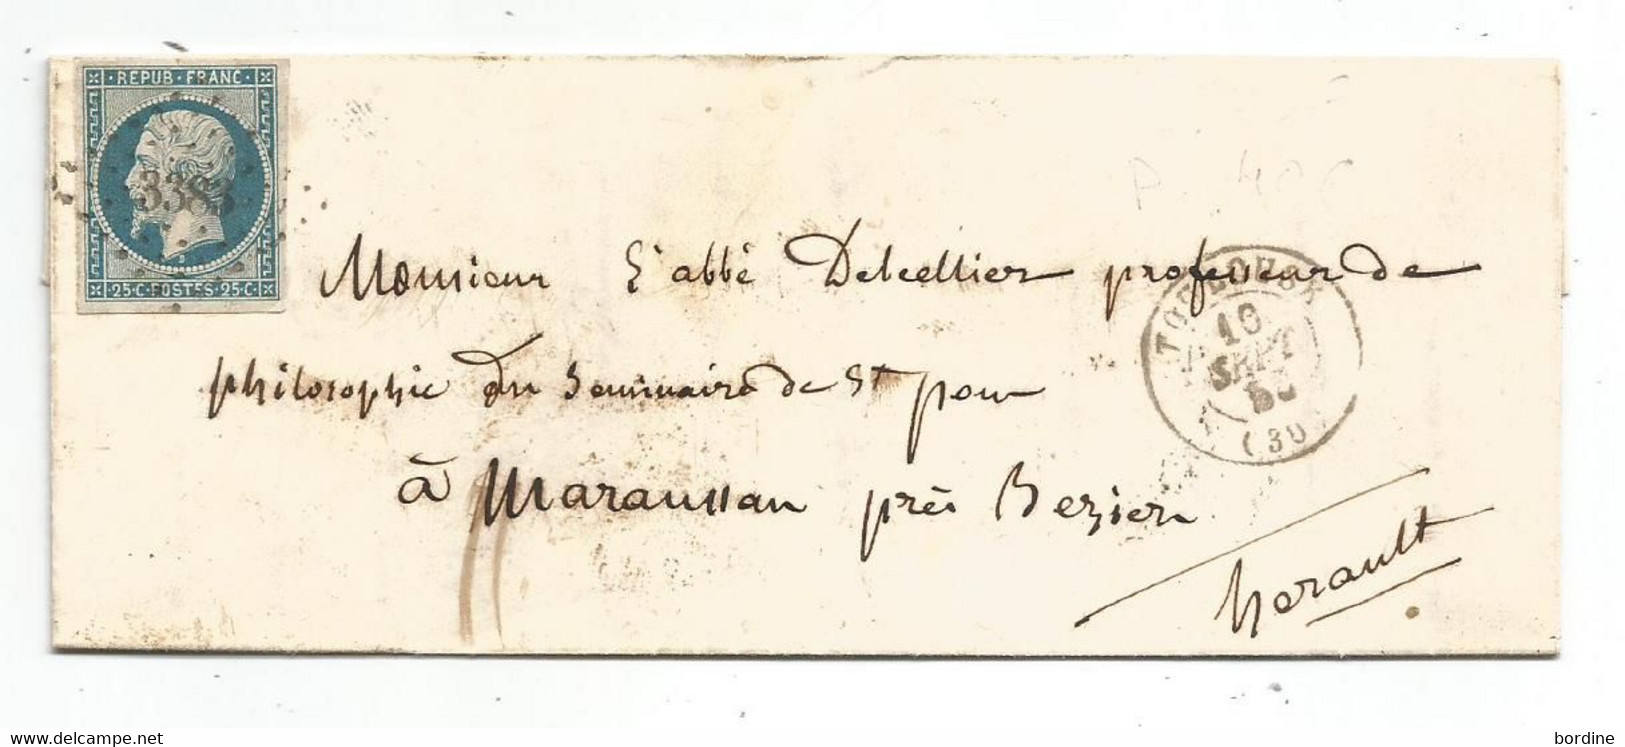 REPUB FRANC
3383
25 C POSTES 25 C
Monsieur L'abbé professeur de
philosophie du Seminaire de St pons
à Maraussan près Bezier
Herault
TOULOUSE
10
SEPT
(30)
www.delcampe.net
bordine